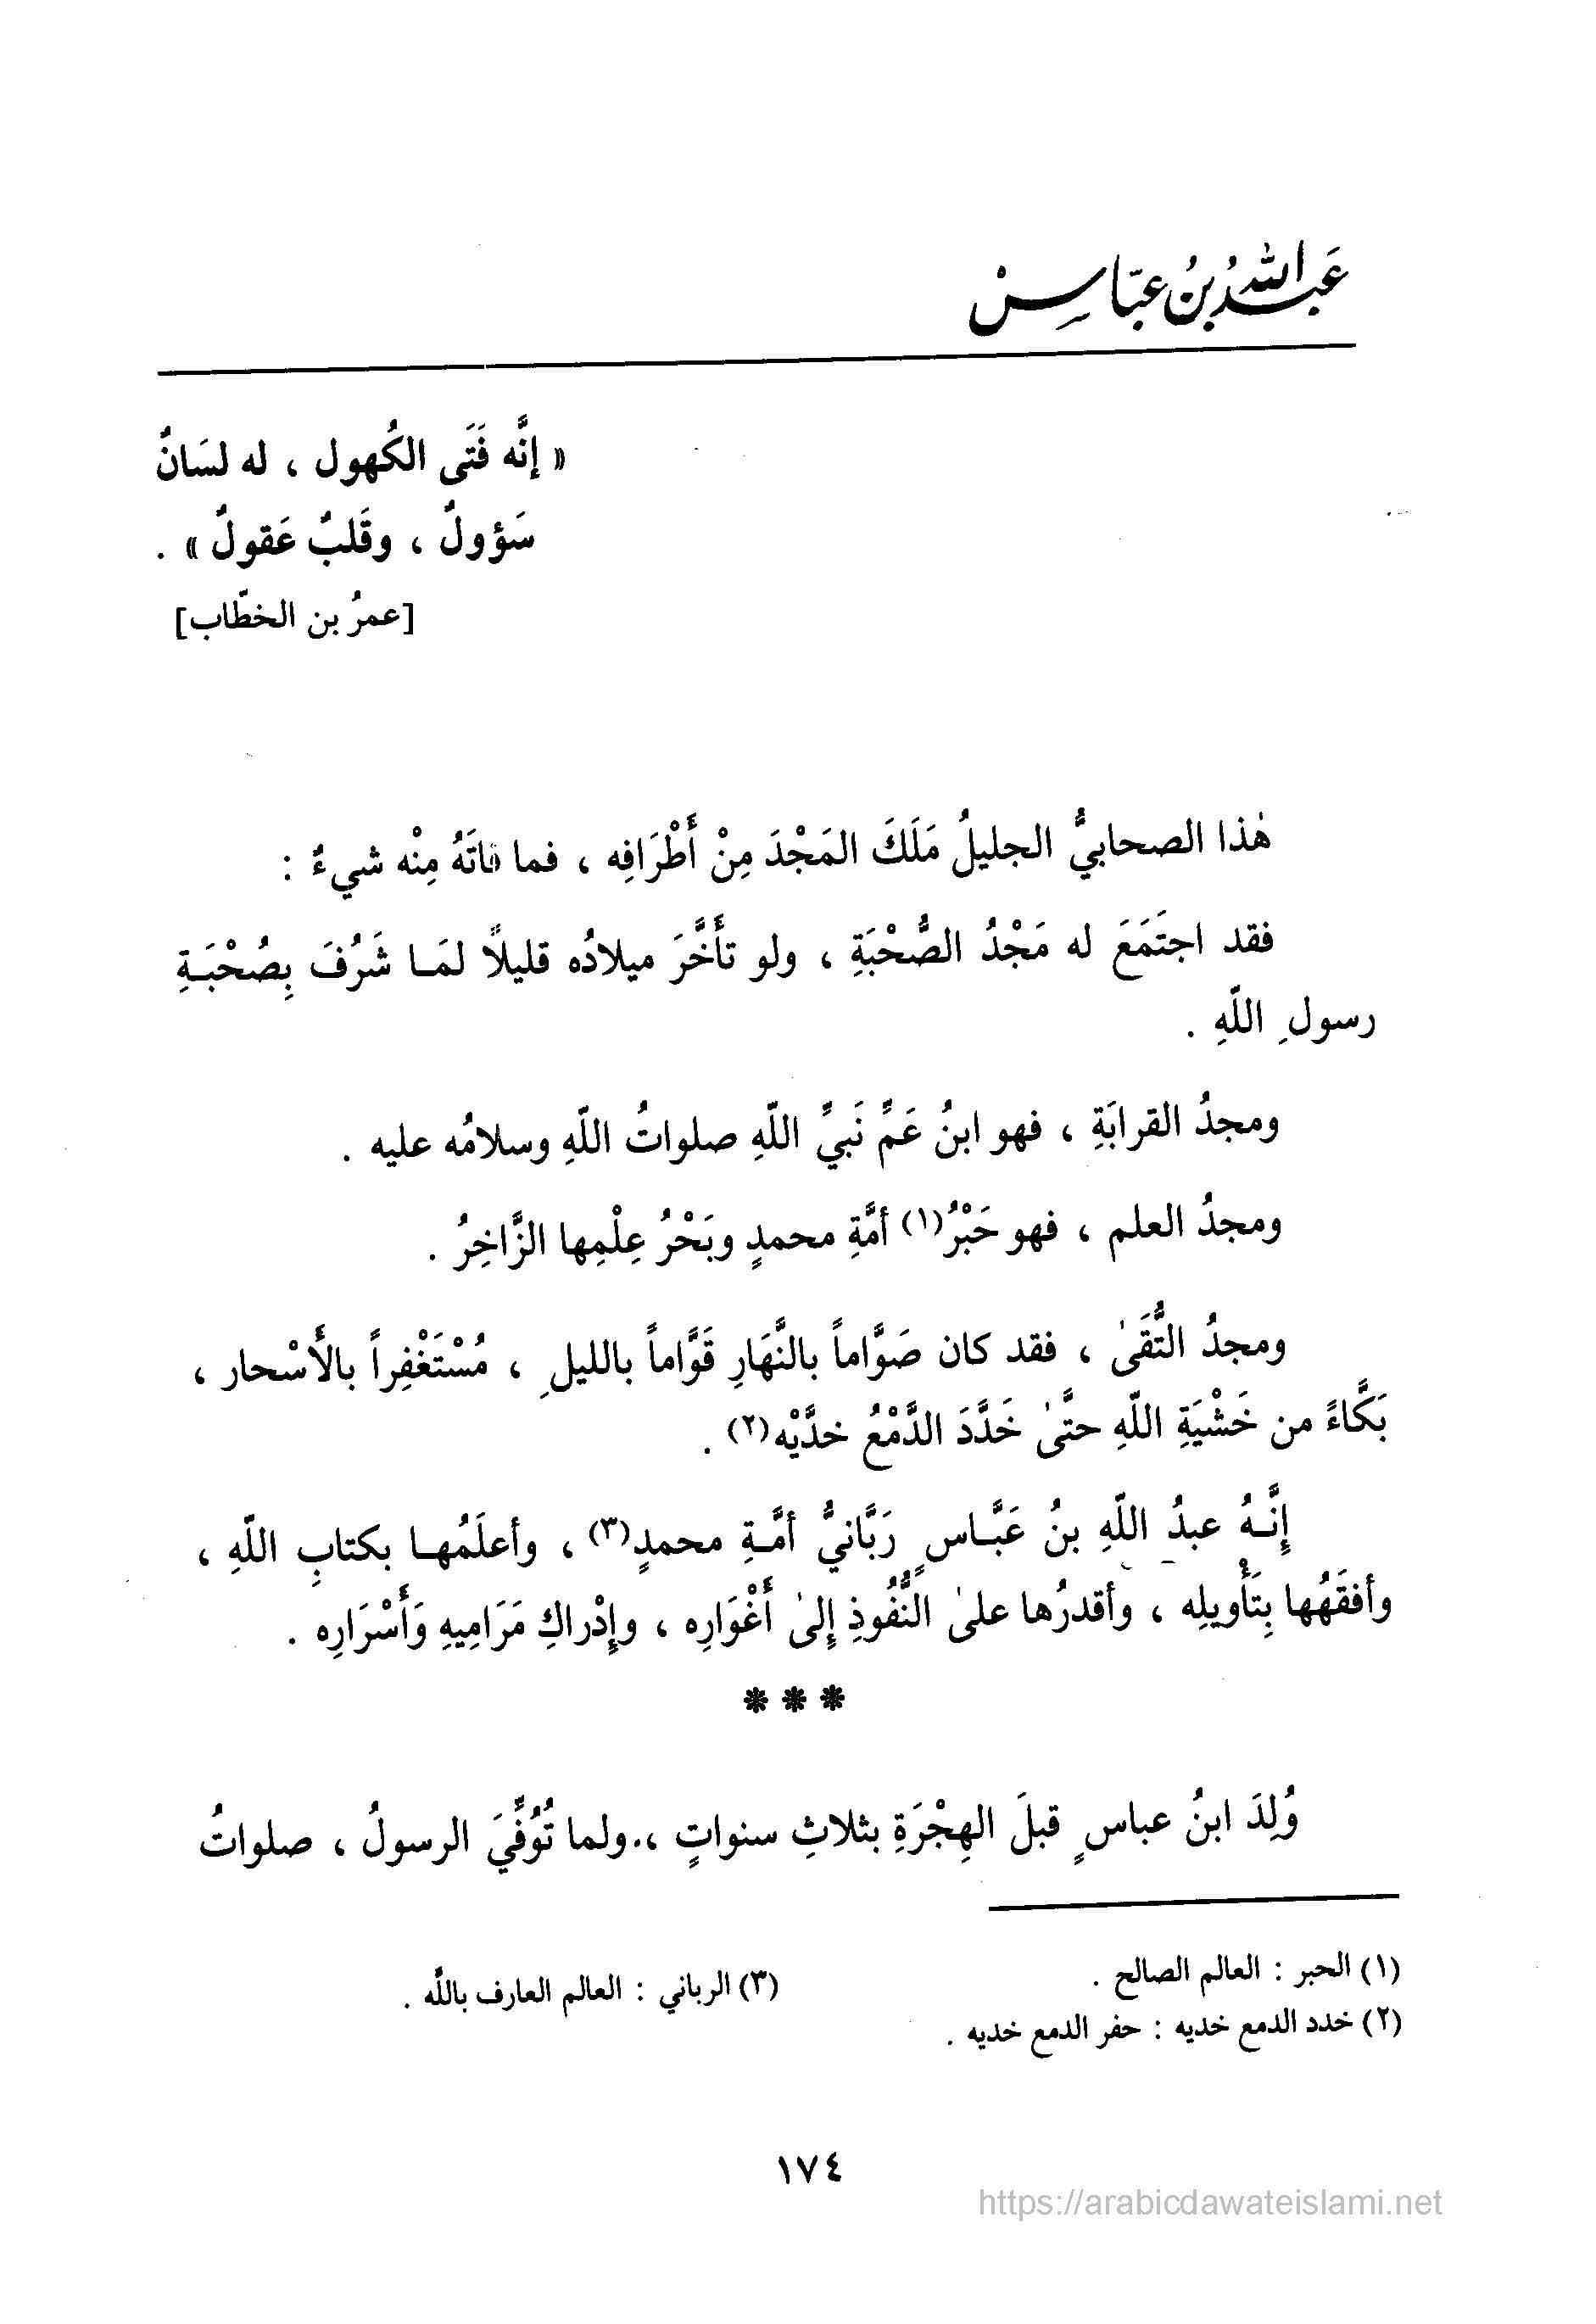 عَبدُ اللهِ بنُ عبّاسْ
« إنَّه فَتَى الكُهول ، له لسَانٌ
سَؤولٌ ، وقَلبٌ عَقولٌ » .
[عمرُ بن الخطّاب]
هٰذا الصحابيُّ الجليلُ مَلَكَ المَجْدَ مِنْ أَطْرَافِه ، فما فاتَهُ مِنْه شيءٌ :
فقد اجتَمَعَ له مَجْدُ الصُّحْبَةِ ، ولو تأَخَّرَ ميلادُه قليلاً لمَـا شَرُفَ بِصُحْبَـةِ
رسولِ اللّهِ .
ومجدُ القرابَةِ ، فهو ابنُ عَمِّ نَبيِّ اللّهِ صلواتُ اللّهِ وسلامُه عليه .
ومجدُ العلم ، فهو حَبْرُ(١) أمَّةِ محمدٍ وبَحْرُ عِلْمِها الزَّاخِرُ .
ومجدُ التُّقَىٰ ، فقد كان صَوَّاماً بالنَّهَارِ قَوَّاماً بالليلِ ، مُسْتَغْفِراً بالأَسْحار ،
بَكَّاءً من خَشْيَةِ اللّهِ حتَّىٰ خَدَّدَ الدَّمْعُ خدَّيْه(٢) .
إِنَّـهُ عبدُ اللّهِ بنُ عَبَّـاسٍ رَبَّانيُّ أمَّـةِ محمدٍ(٣) ، وأعلَمُهـا بكتابِ اللّهِ ،
وأفقَهُها بِتَأْويلِه ، وأقدرُها علىٰ النُّفُوذِ إِلىٰ أَغْوَارِه ، وإِدْراكِ مَرَامِيهِ وَأَسْرَارِه .
***
وُلِدَ ابنُ عباسٍ قبلَ الهِجْرَةِ بثلاثِ سنواتٍ ،.ولما تُوُفِّيَ الرسولُ ، صلواتُ
(١) الحبر : العالم الصالح .
(٢) خدد الدمع خديه : حفر الدمع خديه .
(٣) الرباني : العالم العارف باللّه .
١٧٤
https://arabicdawateislami.net